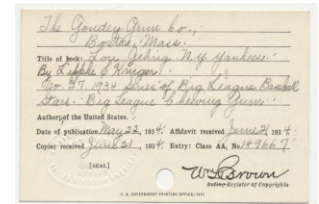 The Goudey Gum Co.,
Boston, Mass.
Title of book: Lou Gehrig N.Y. Yankees.
By
No. 37, 1934 Series of Big League Baseball
Stars. Big League Chewing Gum.
Author of the United States.
Date of publication May 22, 1934. Affidavit received June 21, 1934.
Copies received June 21, 1934. Entry: Class AA, No. 149667
[SEAL]
Wm Brown
Acting Register of Copyrights
U. S. GOVERNMENT PRINTING OFFICE: